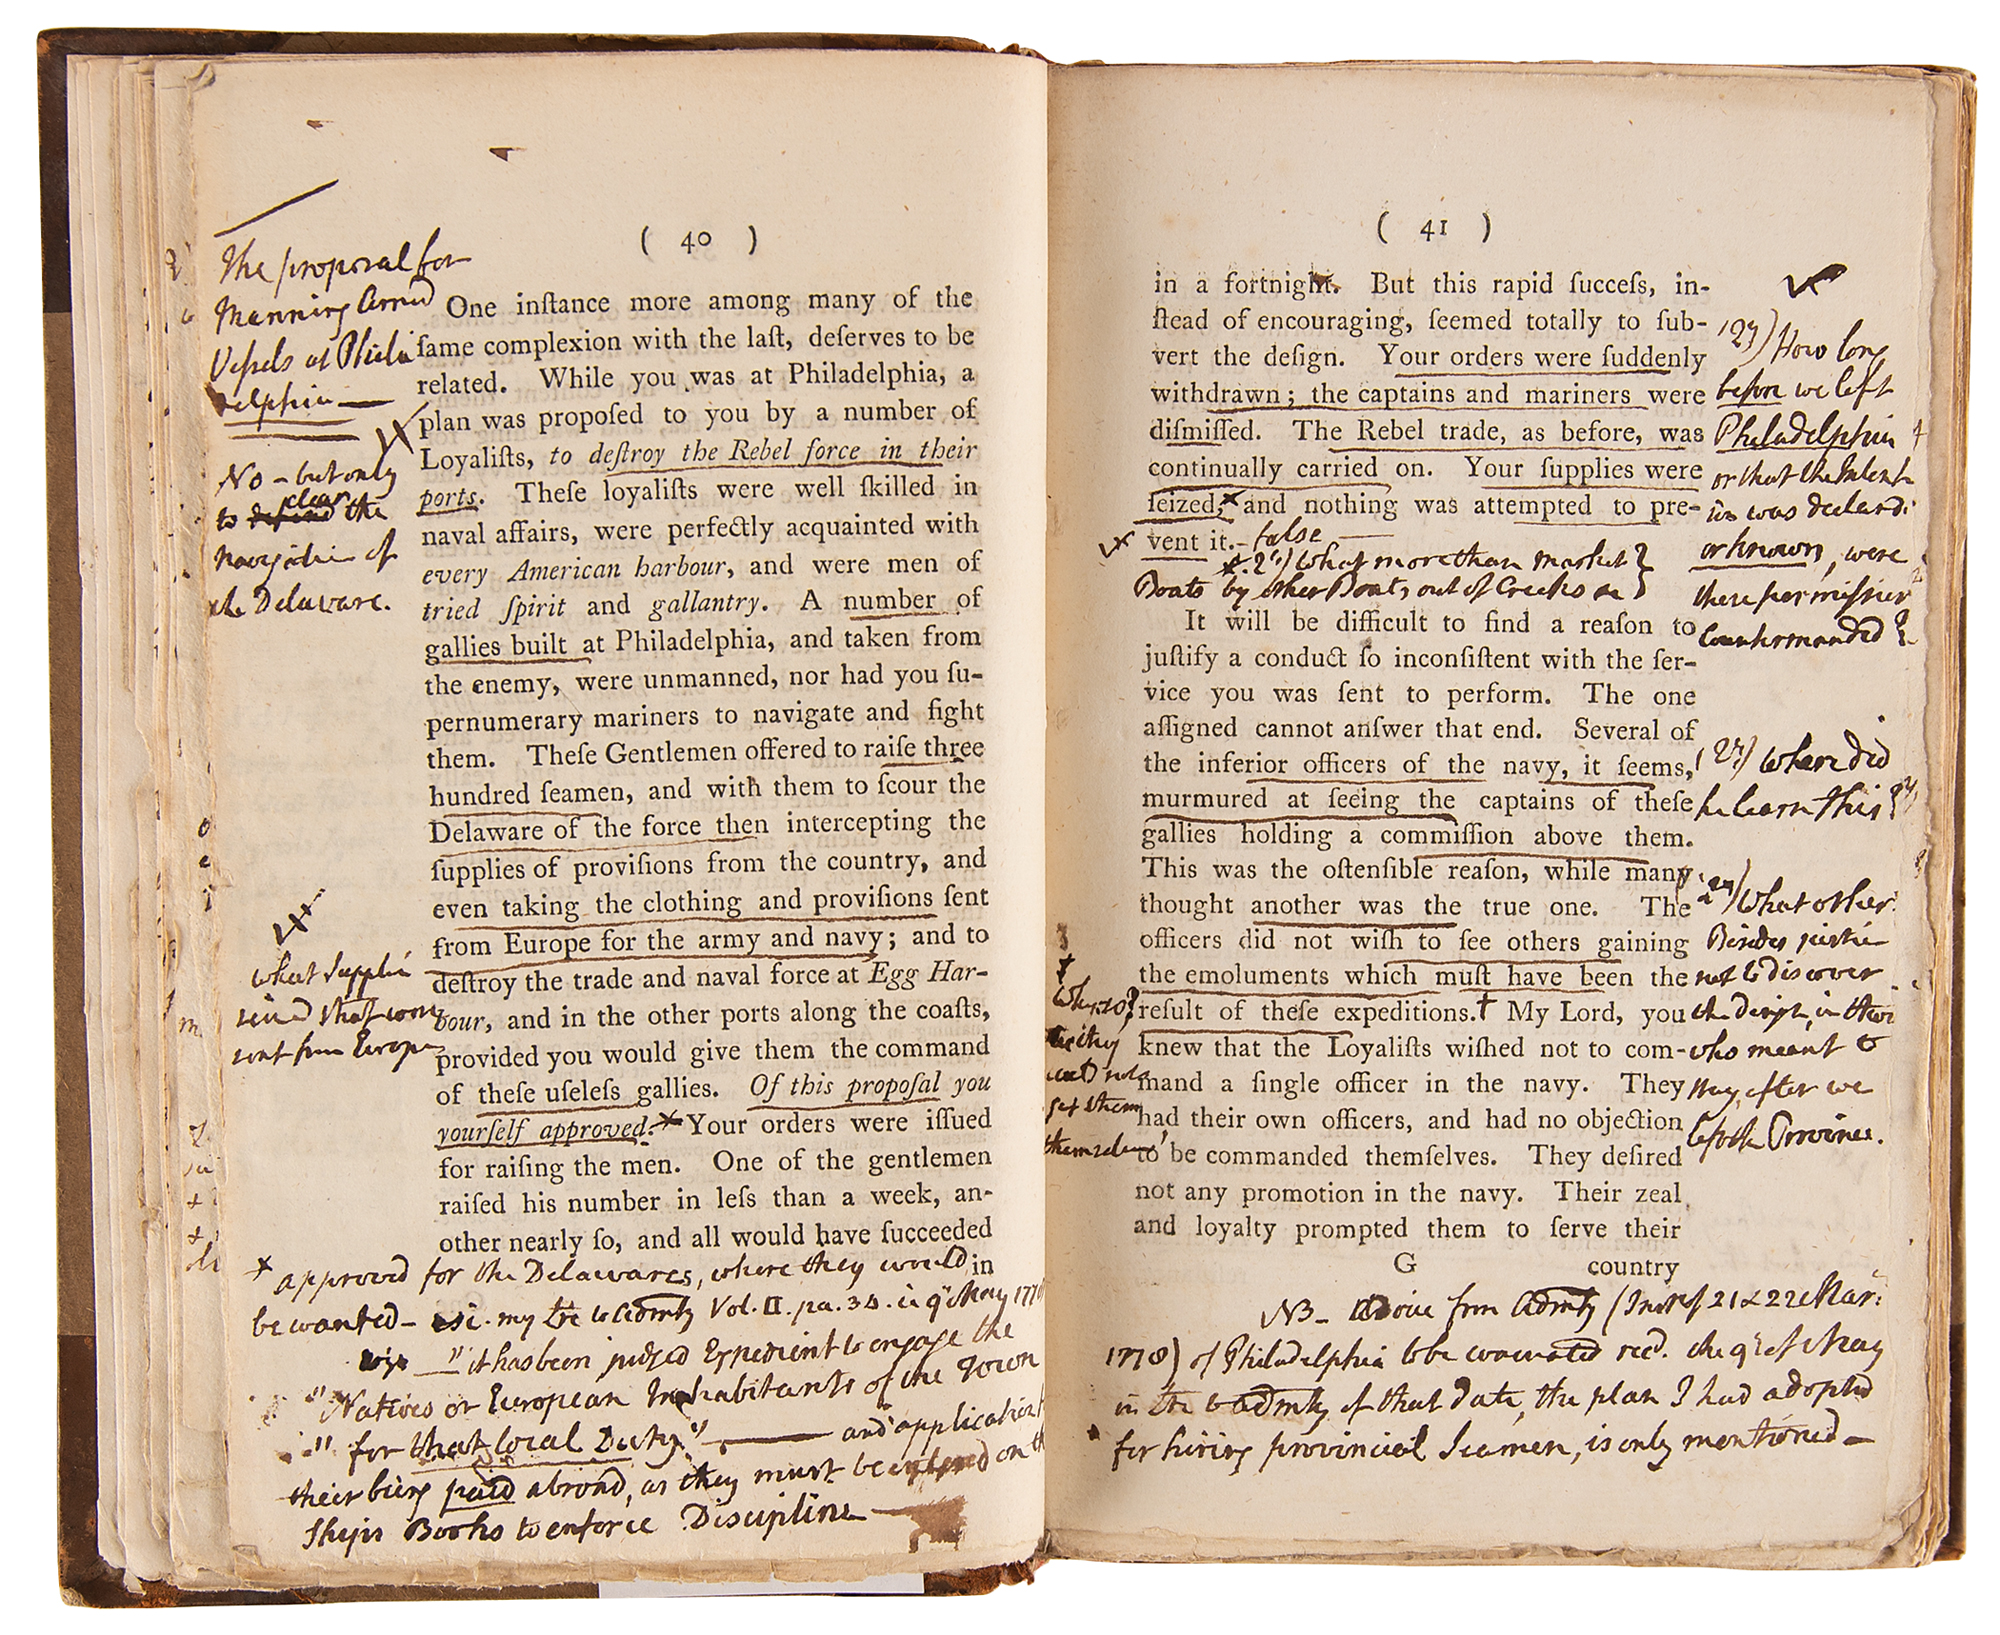 ( 40 )
The proposal for
Manning Armed
Vessels at Phila
delphia —
No - but only
to defend clear the
navigation of
the Delaware.
One inſtance more among many of the
ſame complexion with the laſt, deſerves to be
related. While you was at Philadelphia, a
plan was propoſed to you by a number of
Loyaliſts, to deſtroy the Rebel force in their
ports. Theſe loyaliſts were well ſkilled in
naval affairs, were perfectly acquainted with
every American harbour, and were men of
tried ſpirit and gallantry. A number of
gallies built at Philadelphia, and taken from
the enemy, were unmanned, nor had you ſu-
pernumerary mariners to navigate and fight
them. Theſe Gentlemen offered to raiſe three
hundred ſeamen, and with them to ſcour the
Delaware of the force then intercepting the
ſupplies of proviſions from the country, and
even taking the clothing and proviſions ſent
from Europe for the army and navy; and to
deſtroy the trade and naval force at Egg Har-
bour, and in the other ports along the coaſts,
provided you would give them the command
of theſe uſeleſs gallies. Of this propoſal you
yourſelf approved.* Your orders were iſſued
for raiſing the men. One of the gentlemen
raiſed his number in leſs than a week, an-
other nearly ſo, and all would have ſucceeded
in
what Supplies
seized that were
sent from Europe
* approved for the Delawares, where they would
be wanted - my Lre to Admty Vol. II. pa. 34. 9 May 1778
"it has been judged Expedient to engage the
"Natives or European Inhabitants of the Town
" for that local Duty." — and application
their being paid abroad, as they must be entered on the
Ships Books to enforce Discipline —
( 41 )
in a fortnight. But this rapid ſucceſs, in-
ſtead of encouraging, ſeemed totally to ſub-
vert the deſign. Your orders were ſuddenly
withdrawn; the captains and mariners were
diſmiſſed. The Rebel trade, as before, was
continually carried on. Your ſupplies were
ſeized,* and nothing was attempted to pre-
vent it. - false —
*. 2d) What more than Market
Boats by other Boats out of Creeks &c }
It will be difficult to find a reaſon to
juſtify a conduct ſo inconſiſtent with the ſer-
vice you was ſent to perform. The one
aſſigned cannot anſwer that end. Several of
the inferior officers of the navy, it ſeems,
murmured at ſeeing the captains of theſe
gallies holding a commiſſion above them.
This was the oſtenſible reaſon, while many
thought another was the true one. The
officers did not wiſh to ſee others gaining
the emoluments which muſt have been the
reſult of theſe expeditions.† My Lord, you
knew that the Loyaliſts wiſhed not to com-
mand a ſingle officer in the navy. They
had their own officers, and had no objection
to be commanded themſelves. They deſired
not any promotion in the navy. Their zeal
and loyalty prompted them to ſerve their
G country
How long
before we left
Philadelphia
or that the Intent-
ion was declared
or known, were
these permission
Countermanded?
Where did
he learn this?
What other
Besides justice
not to discover
the design, in those
who meant to
stay, after we
left the Province.
†
Why so?
they
could not
get them
themselves
NB - Advice from Admty (Instrs of 21 & 22 Mar:
1778) of Philadelphia to be evacuated recd. the 9th of May
in Lre to Admty of that date, the plan I had adopted
for hiring provincial Seamen, is only mentioned —